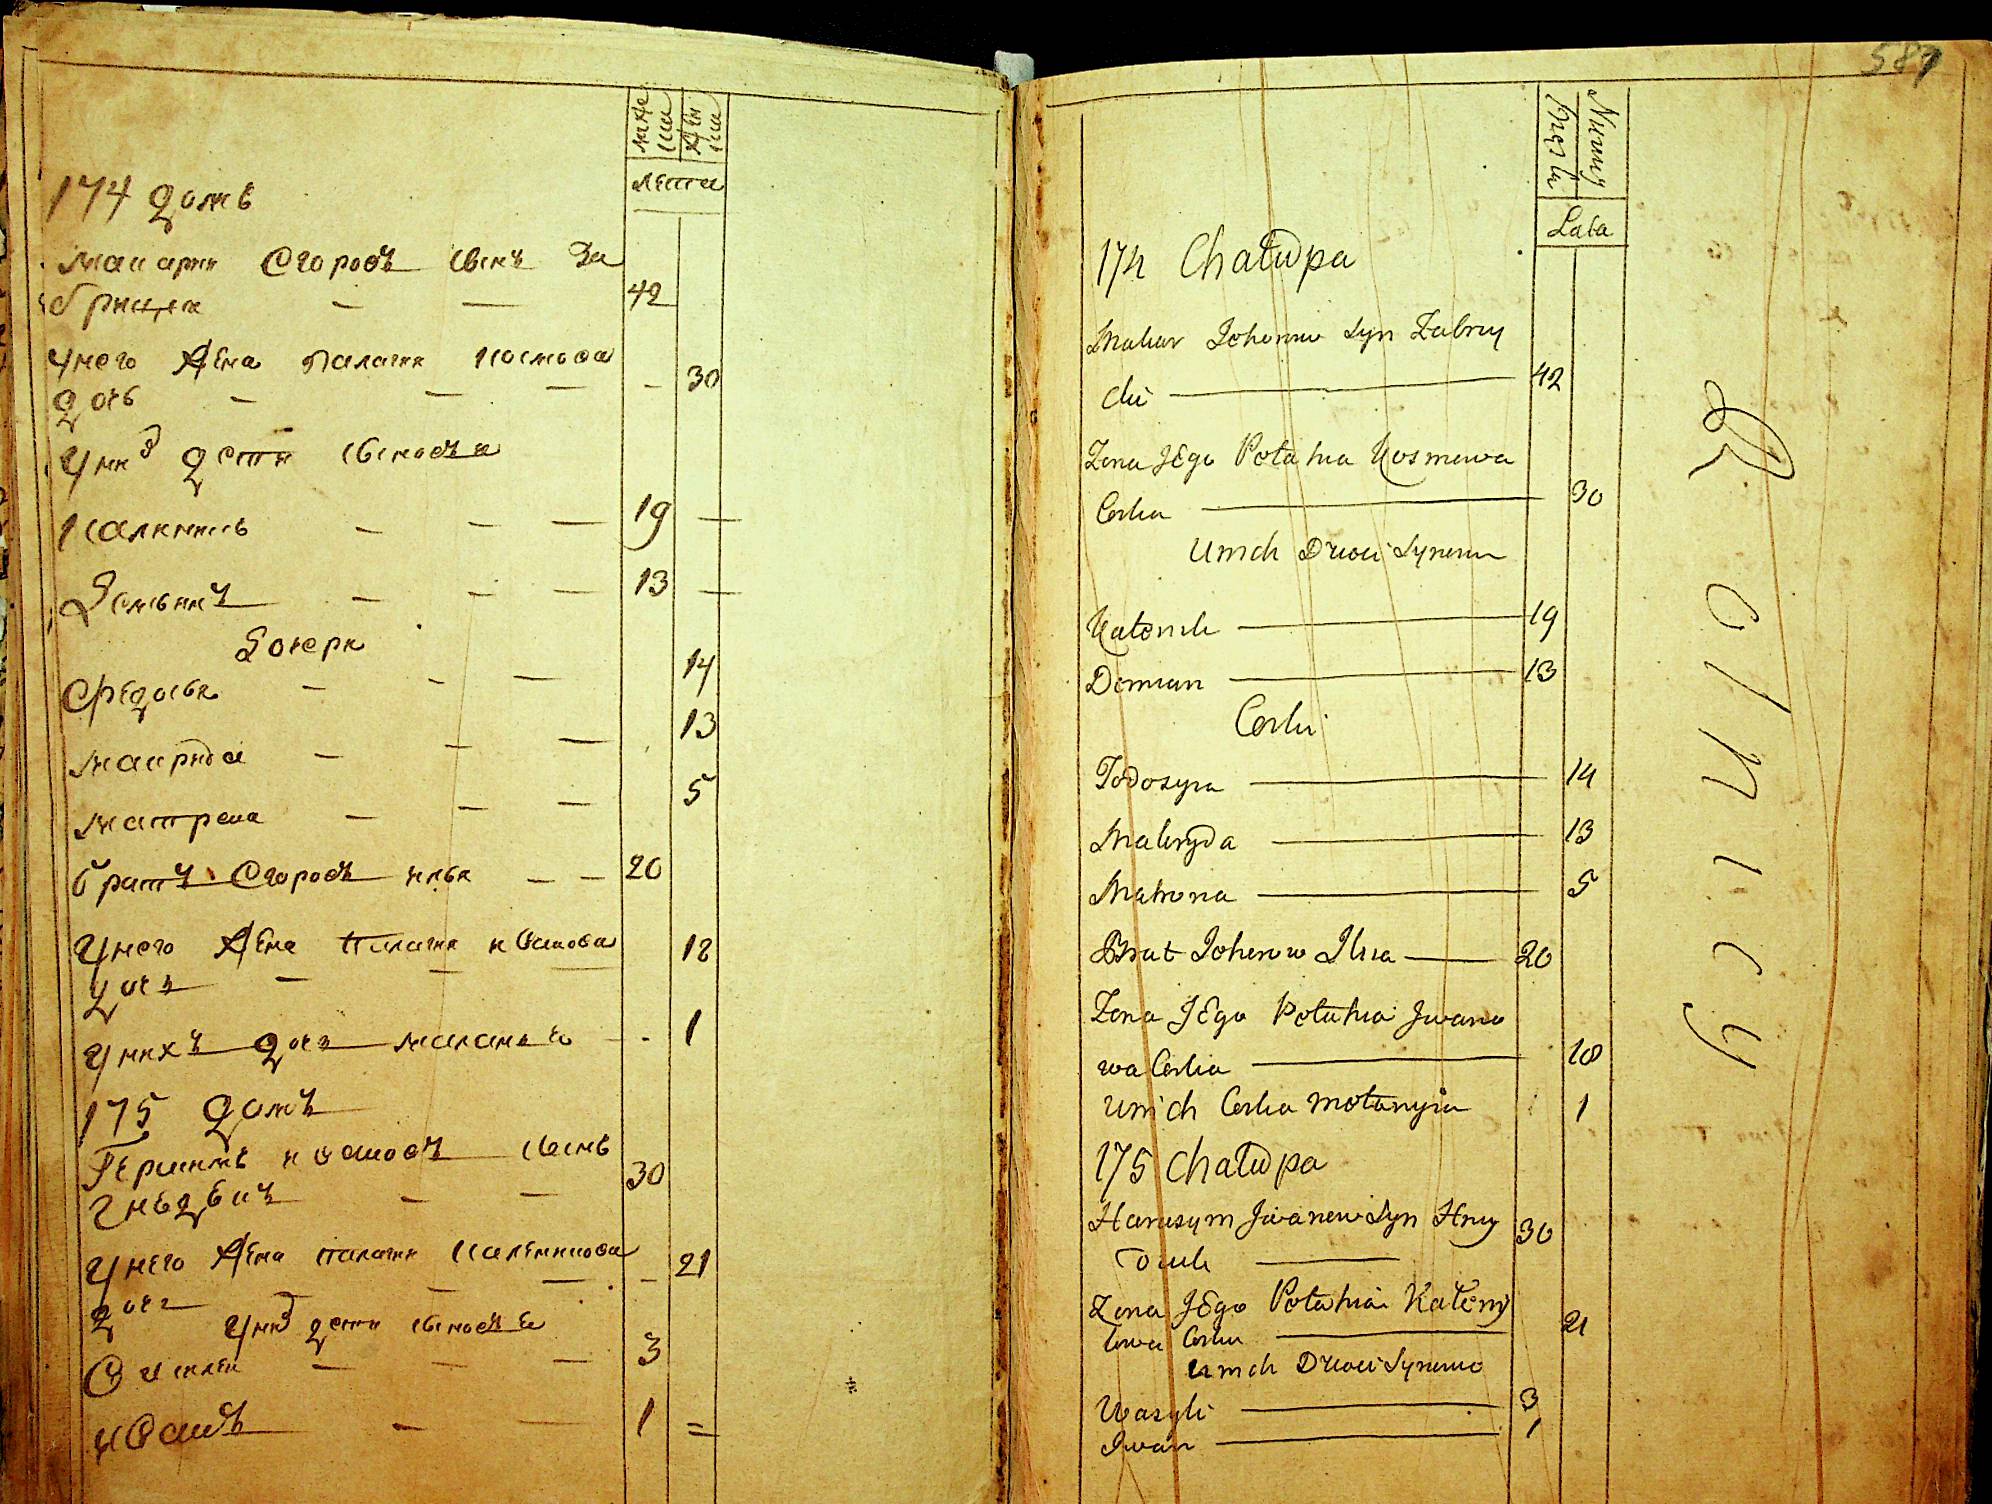 муже
ска
жен
ска
лета
174 домъ
макаръ Егоровъ сынъ За
брицки — — 42
унего жена палагия космова
дочь — — — — 30
Уних дети сыновья
калиникъ — — — 19 —
Демьянъ — — — 13 —
Дочери
Федосья — — — 14
макрида — — — 13
матрена — — — 5
братъ Егоровъ илья — — 20
унего жена палагия иванова
дочь — — — 18
унихъ дочь маланья — 1
175 домъ
Герасимъ ивановъ сынъ
гнездикъ — — 30
унего жена палагия калеников
дочь — — — 21
Уних дети сыновья
Василеи — — — 3
иванъ — — 1 =
587
Męzka
Lata
174 Chałupa
Makar Johorow Syn Zabry
cki 42
Zona JEgo Połahia Kosmowa
Corka 30
Unich Dzieci Synowie
Kałenik 19
Demian 13
Corki
Todosyia 14
Makryda 13
Matrona 5
Brat Johorow Ilia 20
Zona JEgo Połahia Jwano
wa Corka 18
Unich Corka Mołanyia 1
175 Chałupa
Harasym Jwanow Syn Hniz
dzik 30
Zona JEgo Połahia Kałeni
kowa Corka 21
Unich Dzieci Synowie
Wasyli 3
Jwan 1